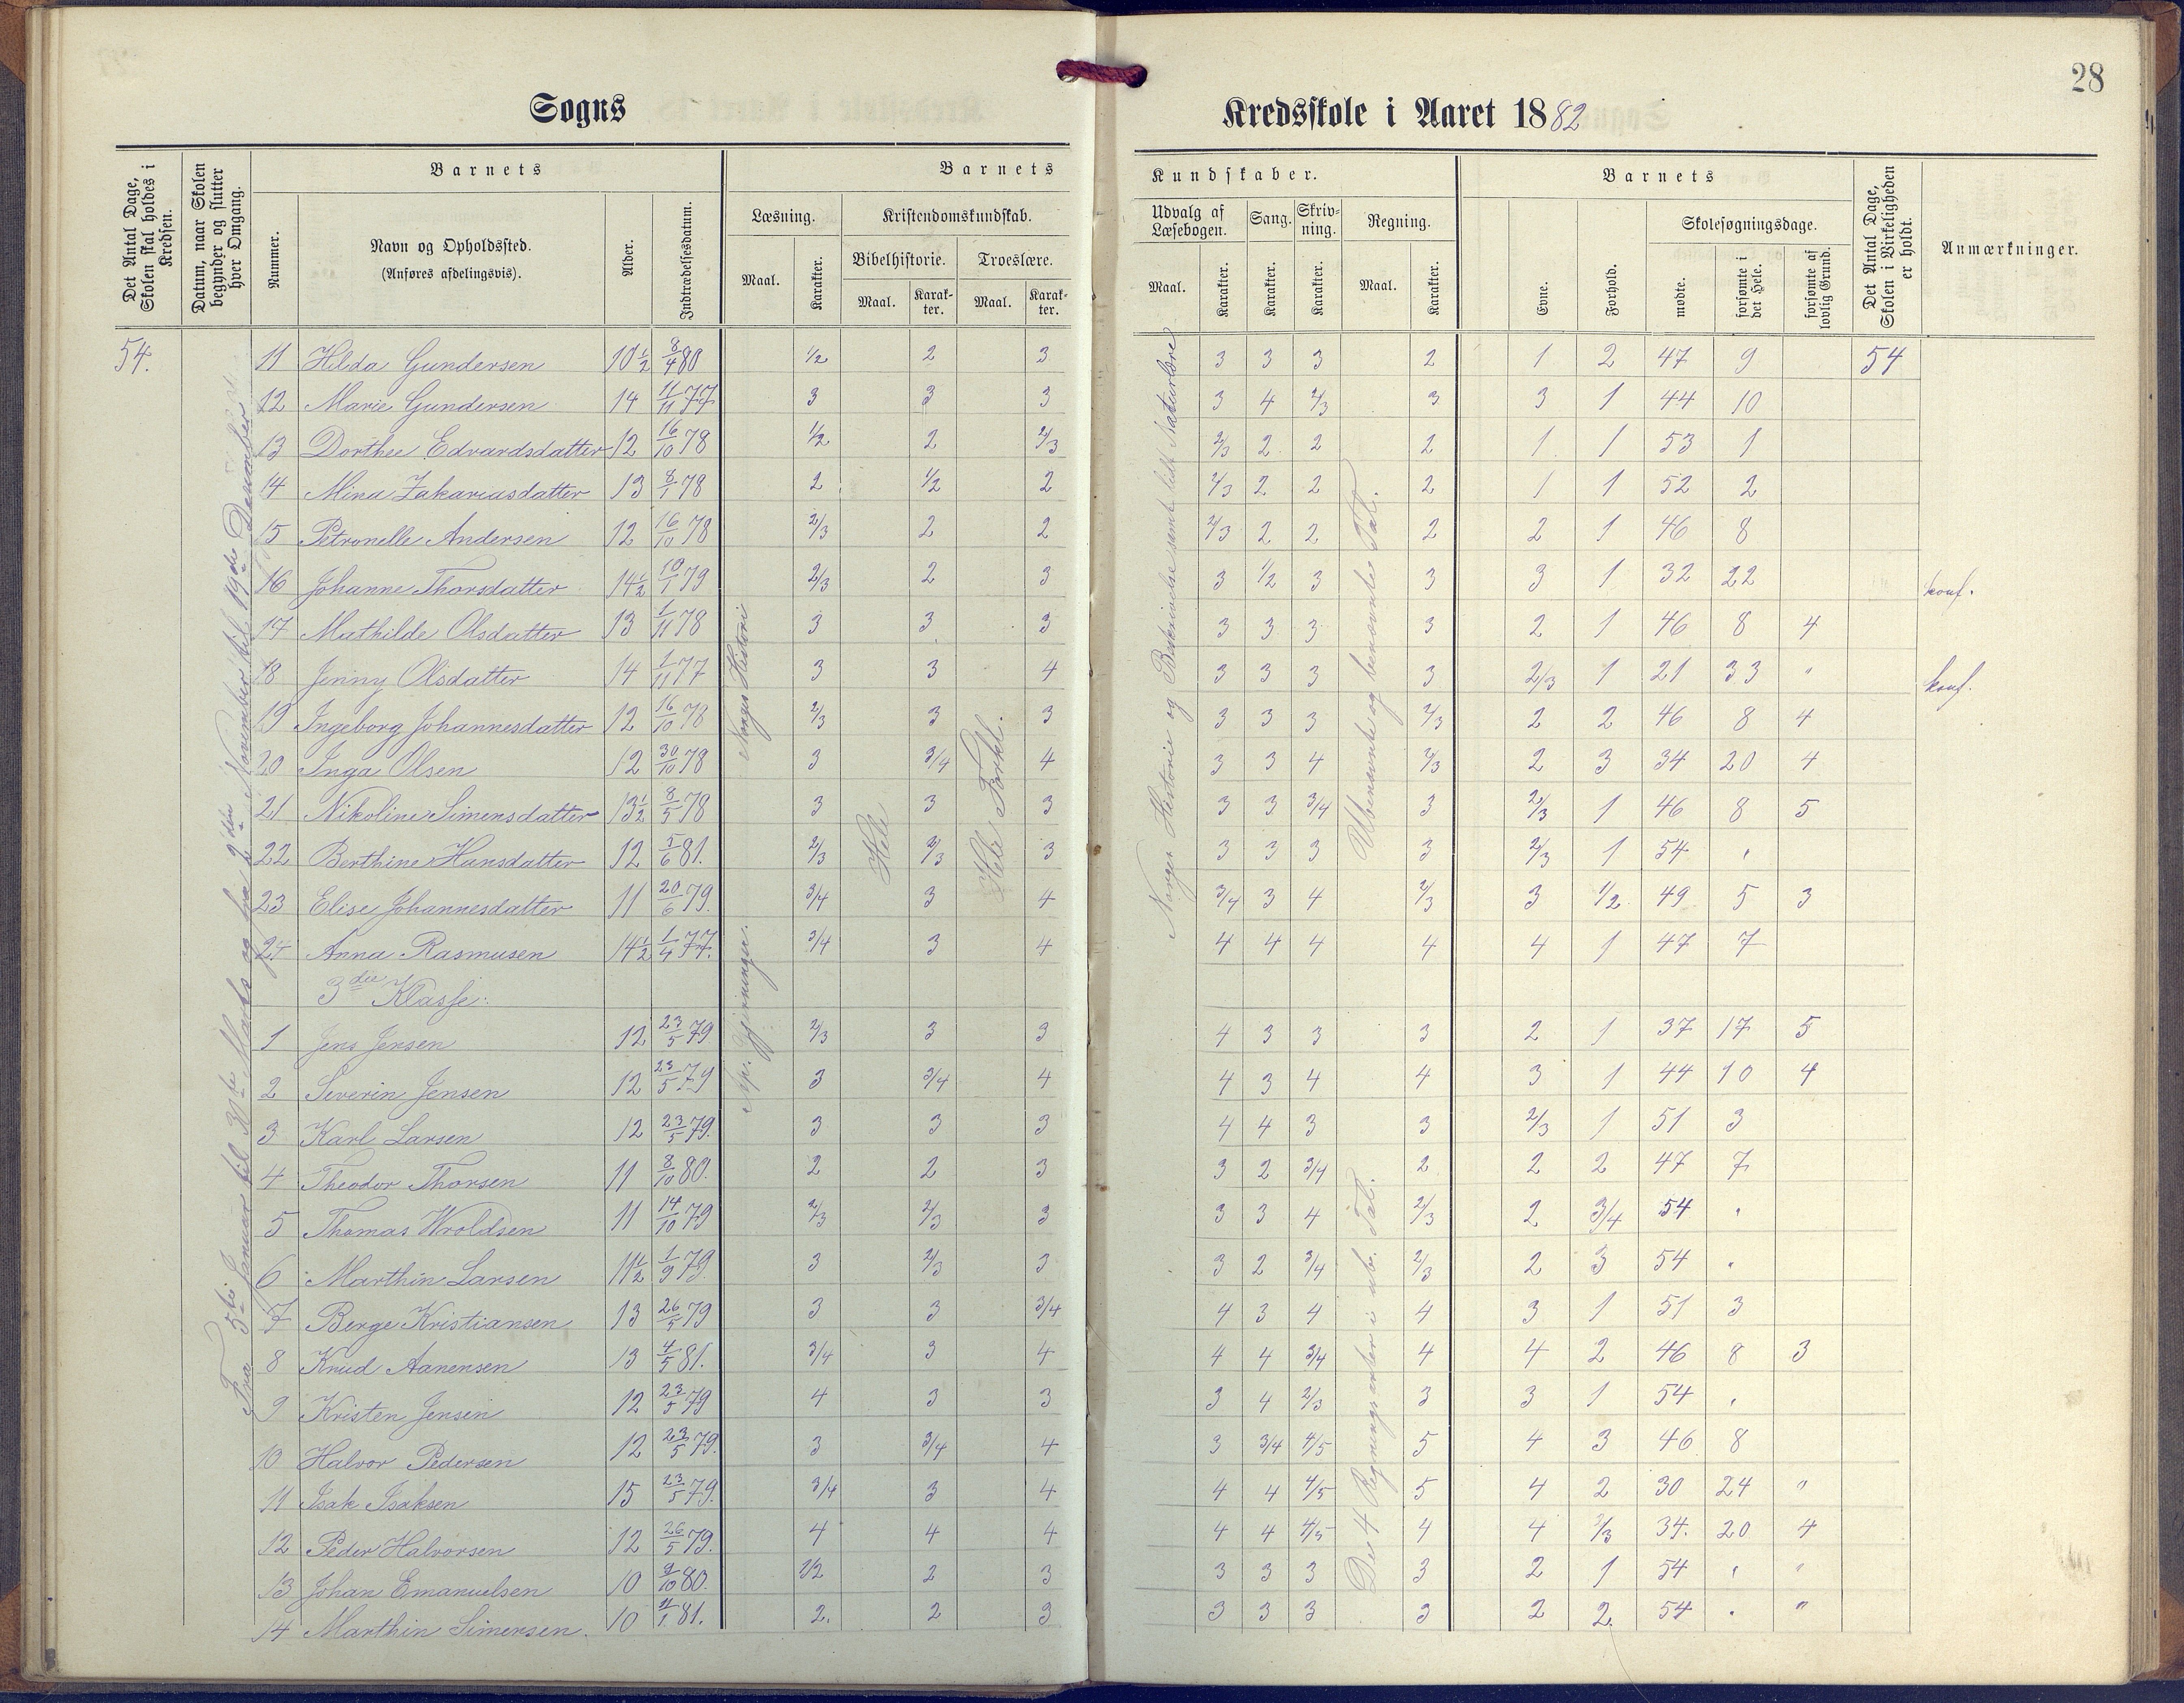 28
Sogns Kredsskole i Aaret 1882
Det Antal Dage, Skolen skal holdes i Kredsen.
Datum, naar Skolen begynder og slutter hver Omgang.
Barnets
Nummer.
Navn og Opholdssted.
(Anføres afdelingsvis).
Alder.
Indtrædelsesdatum.
Barnets Kundskaber.
Læsning. Maal. Karakter.
Kristendomskundskab.
Bibelhistorie. Maal. Karakter.
Troeslære. Maal. Karakter.
Udvalg af Læsebogen. Maal. Karakter.
Sang. Karakter.
Skrivning. Karakter.
Regning. Maal. Karakter.
Barnets
Evne.
Forhold.
Skolesøgningsdage.
mødte.
forsømte i det Hele.
forsømte af lovlig Grund.
Det Antal Dage, Skolen i Virkeligheden er holdt.
Anmærkninger.
54. 11 Hilda Gundersen 10 1/2 8/4 80 1/2 2 3 3 3 3 2 1 2 47 9 54
12 Marie Gundersen 14 11/11 77 3 3 3 3 4 2/3 3 3 1 44 10
13 Dorthee Edvardsdatter 12 16/10 78 1/2 2 2/3 2/3 2 2 2 1 1 53 1
14 Mina Zakariasdatter 13 8/1 78 2 1/2 2 2/3 2 2 2 1 1 52 2
15 Petronelle Andersen 12 16/10 78 2/3 2 2 2/3 2 2 2 2 1 46 8
16 Johanne Thorsdatter 14 1/2 10/1 79 2/3 2 3 3 1/2 3 3 3 1 32 22 konf.
17 Mathilde Olsdatter 13 1/11 78 3 3 3 3 3 3 3 2 1 46 8 4
18 Jenny Olsdatter 14 1/11 77 3 3 4 3 3 3 3 2/3 1 21 33 " konf.
19 Ingeborg Johannesdatter 12 16/10 78 2/3 3 3 3 3 3 2/3 2 2 46 8 4
20 Inga Olsen 12 30/10 78 3 3/4 4 3 3 4 2/3 2 3 34 20 4
21 Nikoline Simensdatter 13 1/2 8/5 78 3 3 3 3 3 3/4 3 2/3 1 46 8 5
22 Berthine Hansdatter 12 5/6 81. 2/3 2/3 3 3 3 3 3 2/3 1 54 "
23 Elise Johannesdatter 11 20/6 79. 3/4 3 4 3/4 3 4 2/3 3 1/2 49 5 3
24 Anna Rasmusen 14 1/2 1/4 77. 3/4 3 4 4 4 4 4 4 1 47 7
3die Klasse:
1 Jens Jensen 12 23/5 79 2/3 3 3 4 3 3 3 2 1 37 17 5
2 Severin Jensen 12 23/5 79 3 3/4 4 4 3 4 4 3 1 44 10 4
3 Karl Larsen 12 23/5 79. 3 3 3 4 4 3 3 2/3 1 51 3
4 Theodor Thorsen 11 8/10 80. 2 2 3 3 2 3/4 2 2 2 47 7
5 Thomas Wroldsen 11 14/10 79 2/3 2/3 3 3 3 4 2/3 2 3/4 54 "
6 Marthin Larsen 11 1/2 1/9 79. 3 2/3 3 3 2 3/4 2/3 2 3 54 "
7 Berge Kristiansen 13 26/5 79 3 3 3/4 4 3 4 4 3 1 51 3
8 Knud Aanensen 13 4/5 81. 3/4 3 4 4 4 3/4 4 4 2 46 8 3
9 Kristen Jensen 12 23/5 79 4 3 3 3 4 2/3 3 3 1 54 "
10 Halvor Pedersen 12 23/5 79. 3 3/4 4 3 3/4 4/5 5 4 3 46 8
11 Isak Isaksen 15 23/5 79. 3/4 3 4 4 4 4/5 5 4 2 30 24 "
12 Peder Halvorsen 12 26/5 79. 4 4 4 4 4 4/5 4 4 2/3 34. 20 4
13 Johan Emanuelsen 10 9/10 80. 1/2 2 3 3 3 3 3 2 1 54 " "
14 Marthin Simensen. 10 11/1 81. 2. 2 3 3 3 3 3 2 2. 54 " "
Fra 3die Januar til 31te Marts og fra 2den November til 19de Desember.
Norges Historie
Ap. Gjerninger.
Hele
Hele Forkl.
Norges Historie og Beskrivelse samt lidt Naturlære
Ubenævnte og benævnte Tal.
De 4 Regningsarter i ube. Tal.